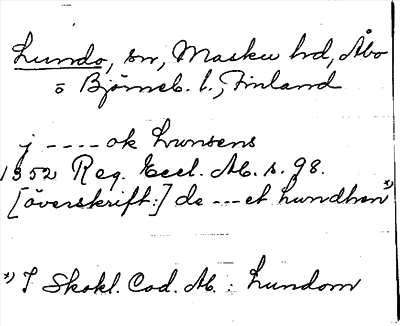 Lundo, sn, Masku hd, Åbo
o Björneb. l., Finland
j ---- ok Lunsens
1352 Reg. Eccl. Ab. s. 98.
[överskrift:] de --- et Lundhen *)
*) I Skokl. Cod. Ab. : Lundom